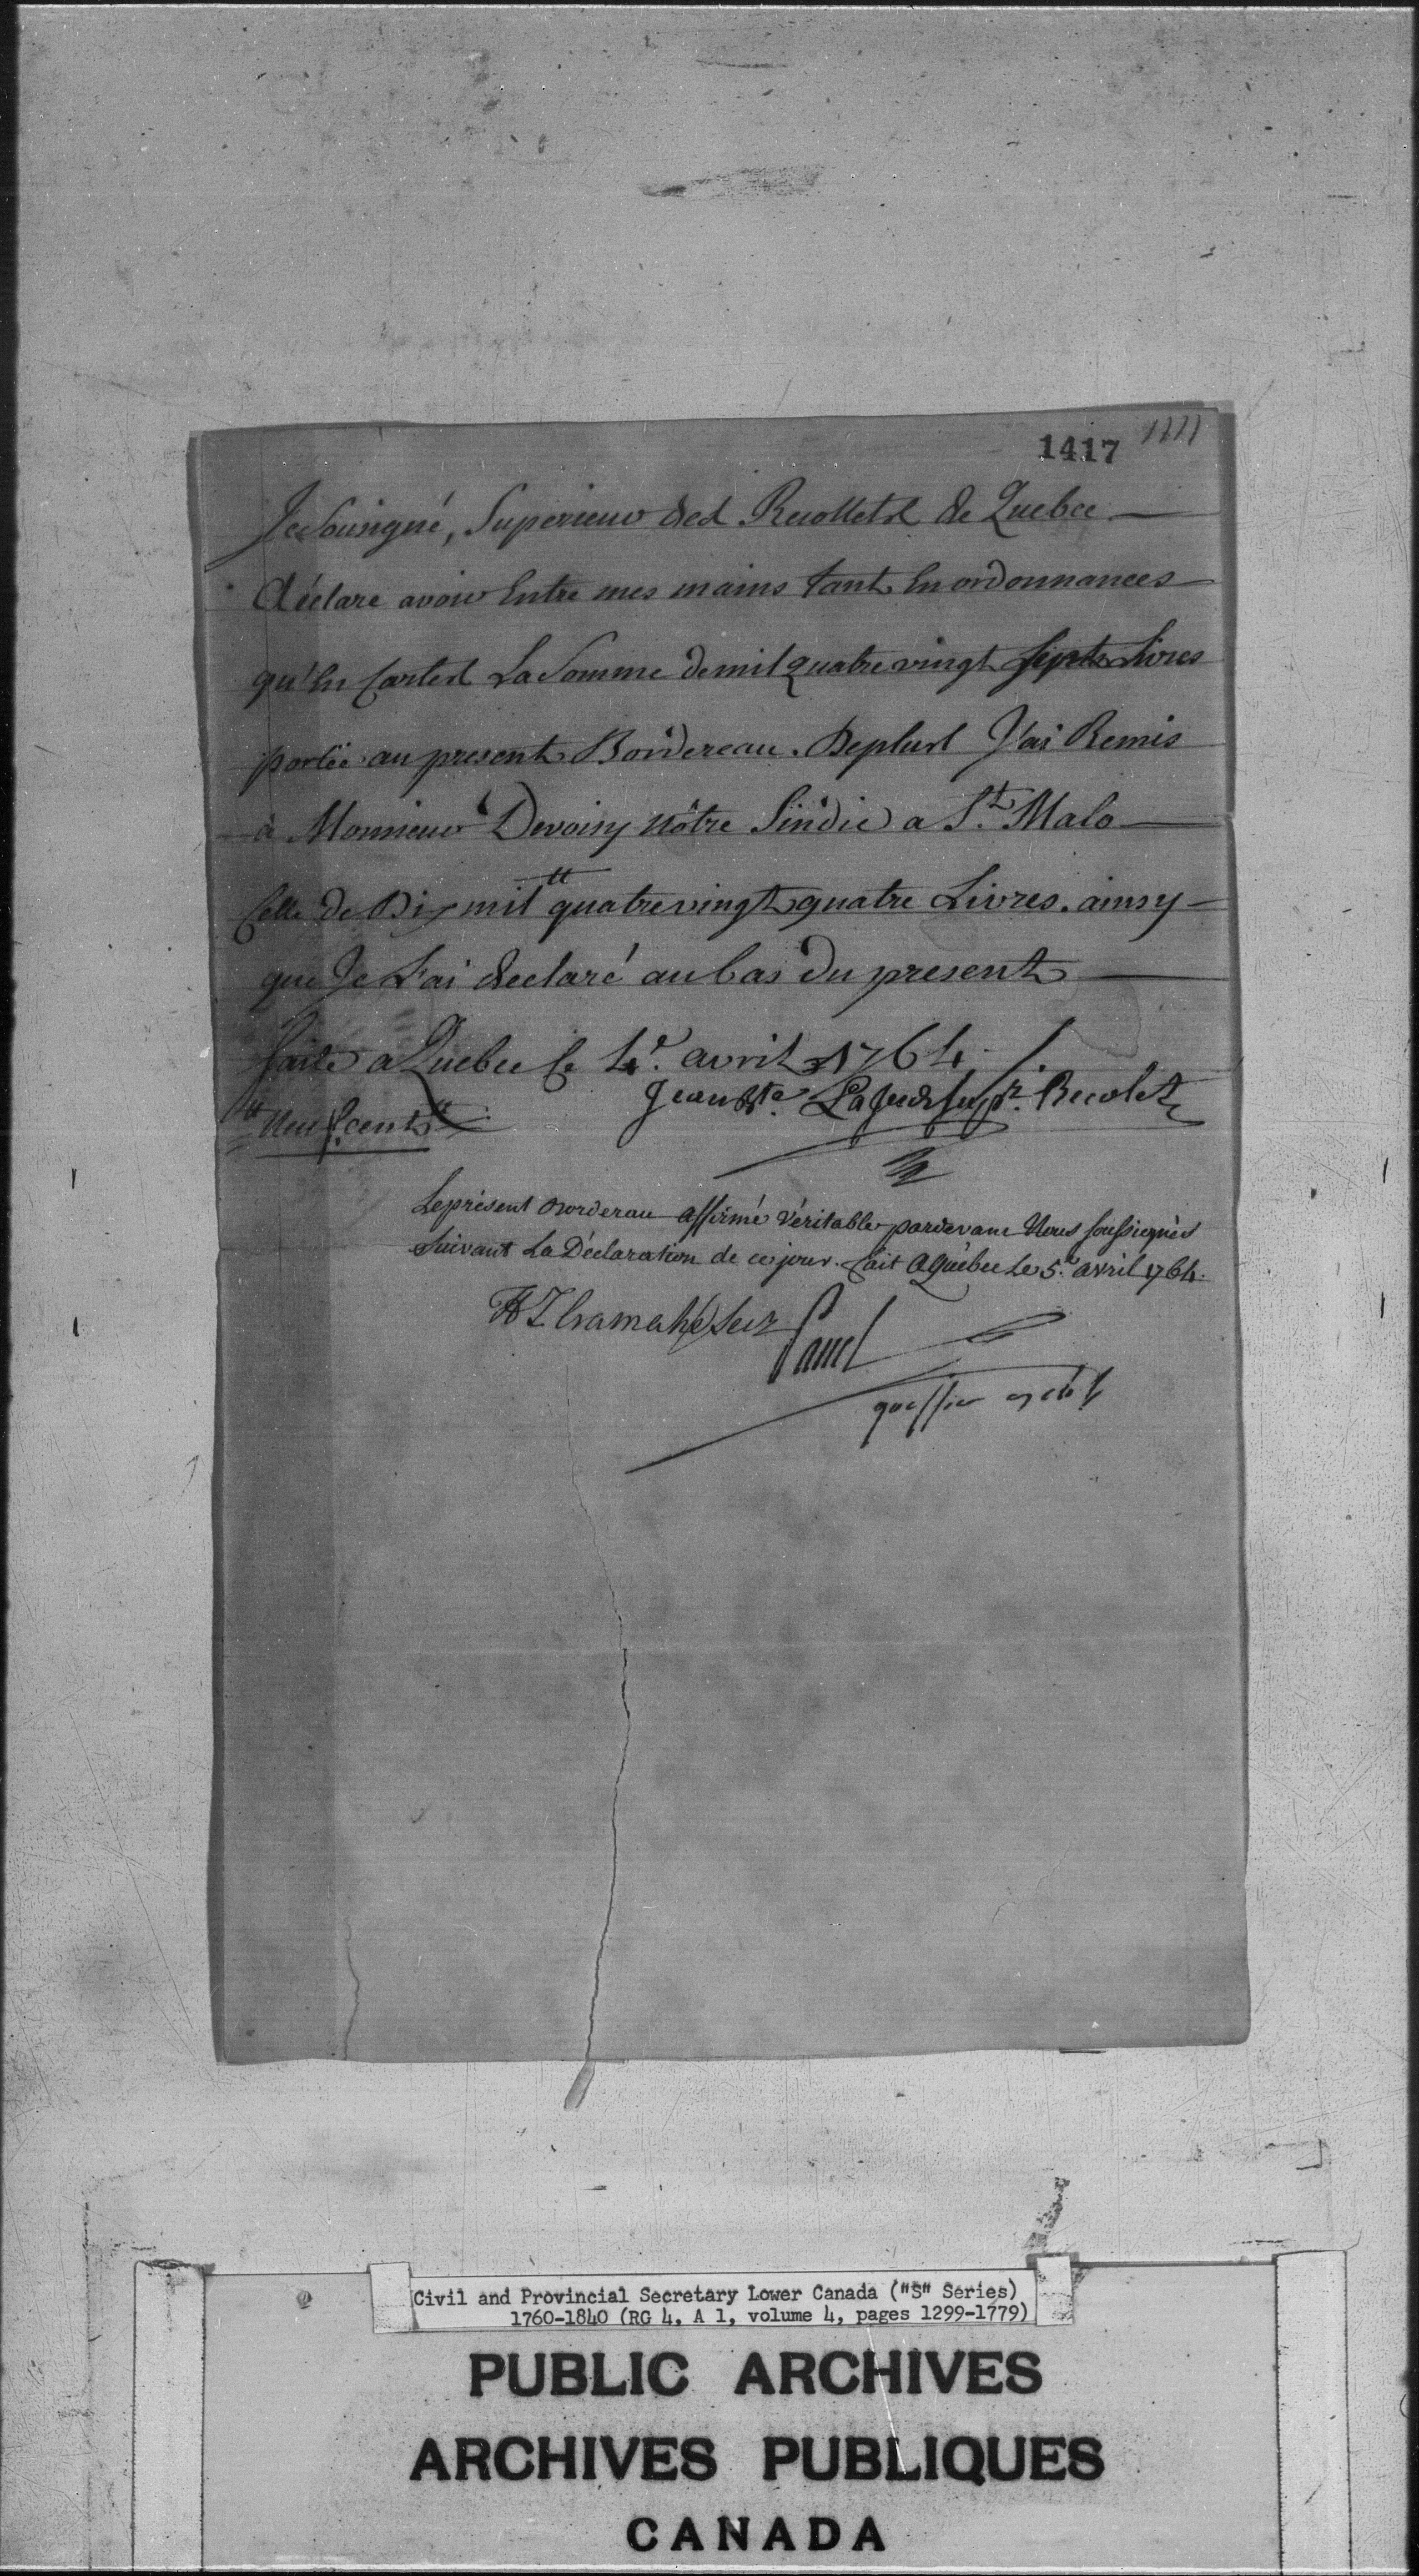 1417
Je Sousigné, Superieur des Recollets de Quebec
déclare avoir Entre mes mains tant En ordonnances
qu'En Cartes La Somme de mil quatre vingt sept Livres
portée au present Bordereau. Deplus J'ai Remis
à Monsieur Devoisy nôtre Sindic a St. Malo
Celle de Dix mil # quatre vingt quatre Livres. ainsy
que Je L'ai declaré au bas du present
faite a Quebec le 4e. avril 1764 ./.
Jean Bte. Lajus supr. Recolet
# Neuf cent #
Le présent Bordereau affirmé Véritable pardevant Nous soussignés
Suivant La Déclaration de ce jour. fait A Québec Le 5e. avril 1764.
HT Cramahé Secr
Panet
greffier
Civil and Provincial Secretary Lower Canada ("S" Series)
1760-1840 (RG 4, A 1, volume 4, pages 1299-1779)
PUBLIC ARCHIVES
ARCHIVES PUBLIQUES
CANADA